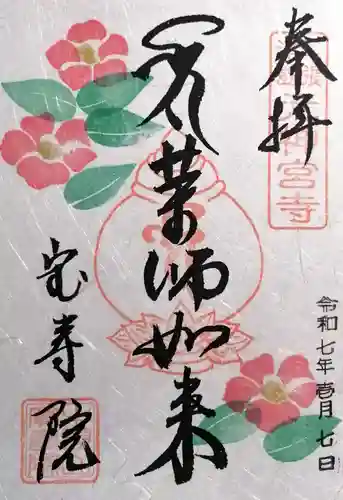 奉拝
宮寺
薬師如来
宝寿院
令和七年壱月七日